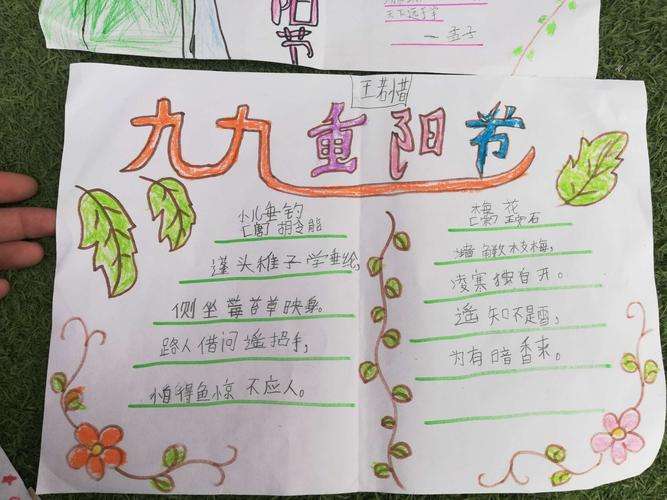 天下运于掌
—孟子
阳节
王若惜
九九重阳节
小儿垂钓
[唐] 胡令能
蓬头稚子学垂纶,
侧坐莓苔草映身。
路人借问遥招手,
怕得鱼惊不应人。
梅花
王安石
墙角数枝梅,
凌寒独自开。
遥知不是雪,
为有暗香来。